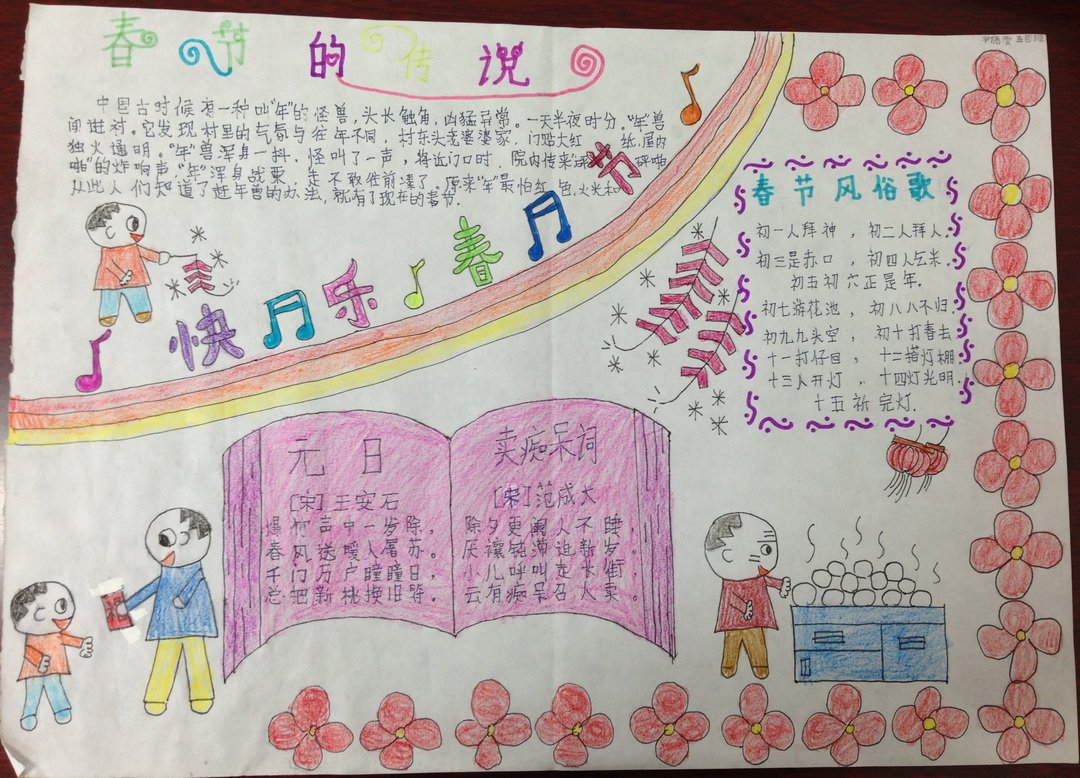 春节的传说
中国古时候有一种叫"年"的怪兽,头长触角,凶猛异常。一天半夜时分,"年"兽
闯进村。它发现村里的气氛与往年不同,村东头老婆婆家,门贴大红 纸,屋内
独火通明。"年"兽浑身一抖,怪叫了一声,将近门口时,院内传来
啪"的炸响声,"年"浑身战栗,走不敢往前凑了。原来"年"最怕红色,火光和
从此人们知道了赶年兽的办法,就有了现在的春节.
快乐春节
春节风俗歌
初一人拜神,初二人拜人.
初三是赤口,初四人乞米.
初五初六正是年.
初七游花池,初八八不归.
初九九头空,初十打春去
十一打仔回,十二搭灯棚
十三人开灯,十四灯光明.
十五祈完灯.
元日
[宋]王安石
爆竹声中一岁除,
春风送暖入屠苏。
千门万户瞳瞳日,
总把新桃换旧符。
卖痴呆词
[宋]范成大
除夕更阑人不睡,
厌禳钝滞迎新岁。
小儿呼叫走长街,
云有痴呆召人卖。